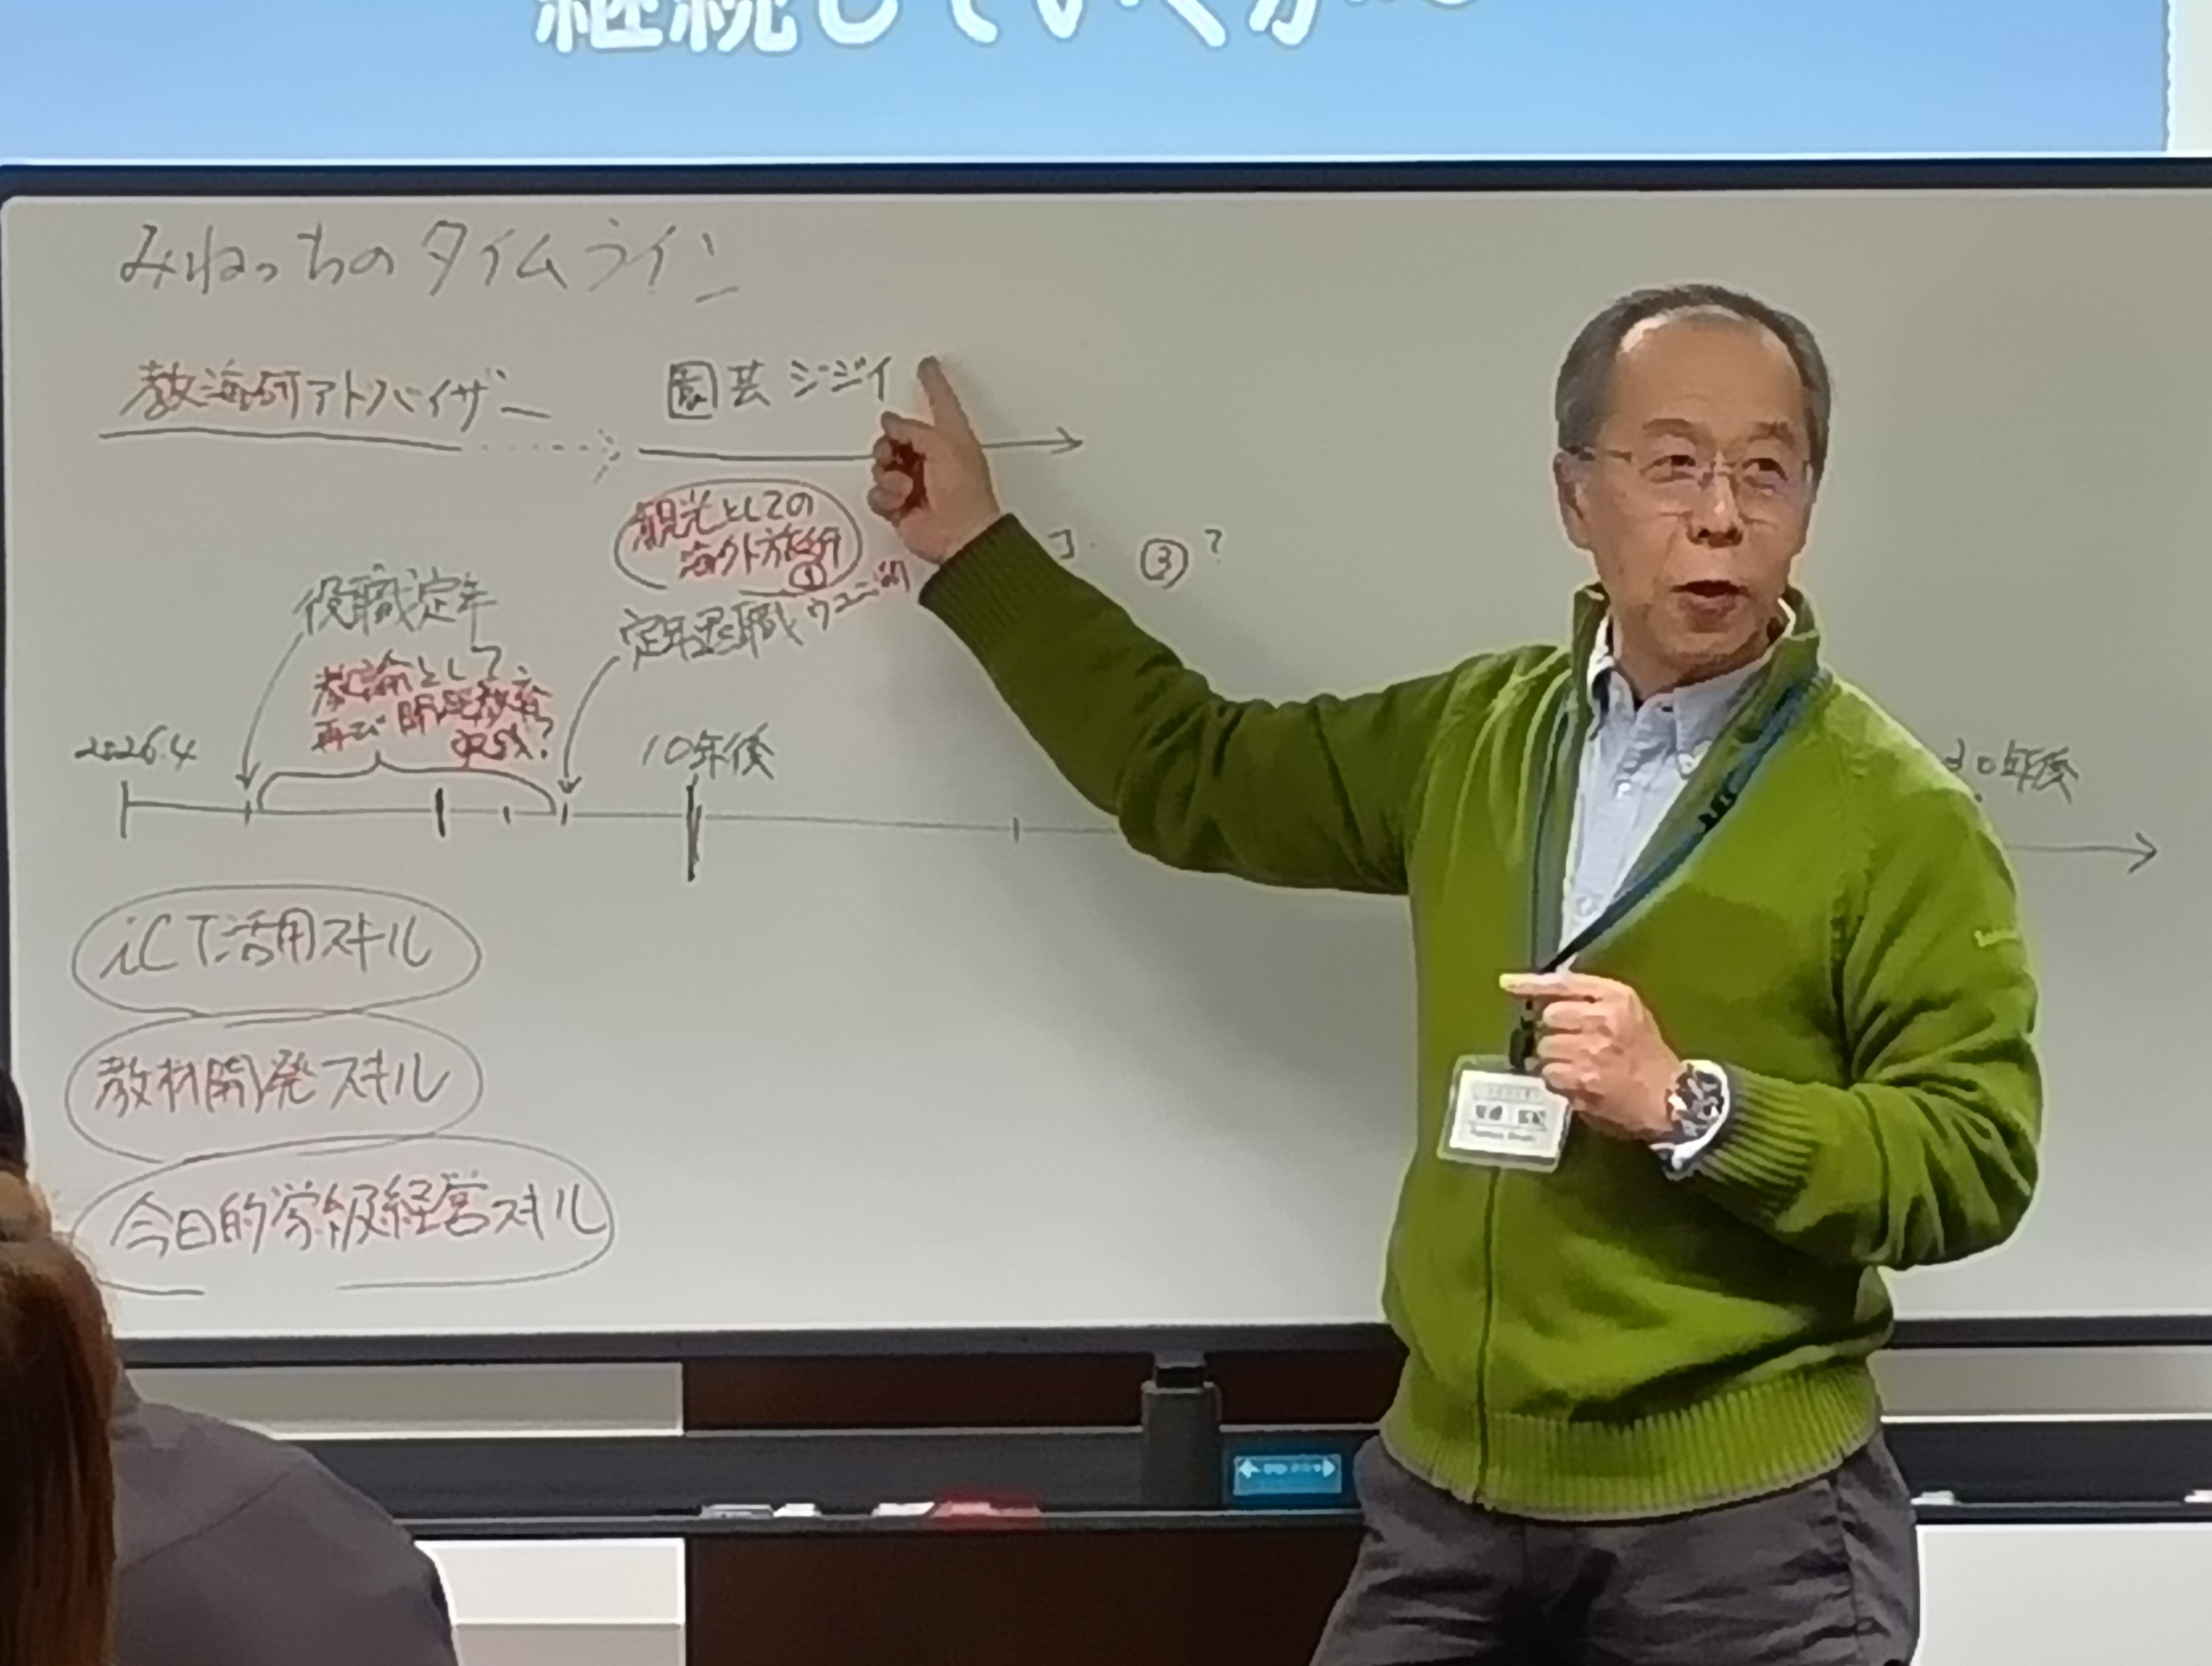 継続していくか
みねっちのタイムライン
教海研アドバイザー
園芸ジジイ
観光としての
海外旅行
①
③?
役職定年
定年退職
教諭として
再び
2026.4
10年後
30年後
iCT活用スキル
教材開発スキル
今日的学級経営スキル